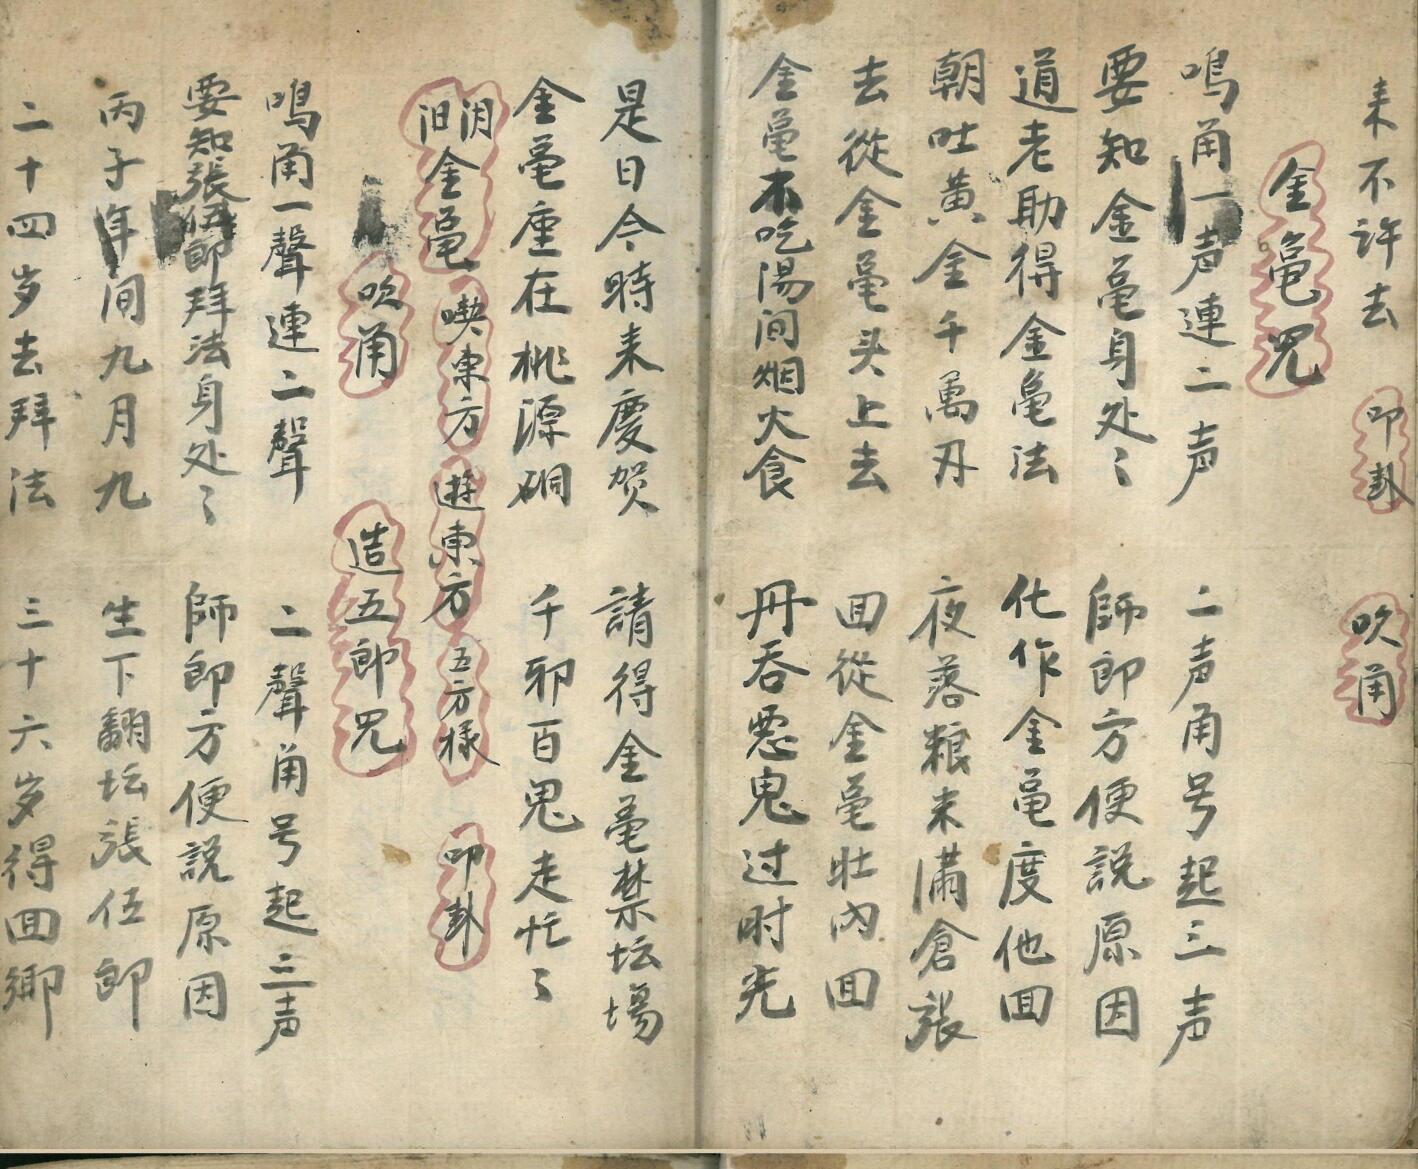 来不许去 叩卦 吹角
金黾咒
鳴角一声連二声 二声角号起三声
要知金黾身处〻 師郎方便説原因
道老助得金黾法 化作金黾度他回
朝吐黄金千萬刄 夜落粮米满倉張
去從金黾头上去 回從金黾壮內回
金黾不吃陽间烟火食 丹吞悪鬼过时光
是日今時来慶贺 請得金黾禁坛場
金黾重在桃源硐 千邪百鬼走忙〻
金黾 喫東方 遊東方 五方樣 叩卦
吹角 造五郎咒
鳴角一聲連二聲 二聲角号起三声
要知張伍郎拜法身处〻 師郎方便説原因
丙子年间九月九 生下翻坛張伍郎
二十四岁去拜法 三十六岁得回鄉